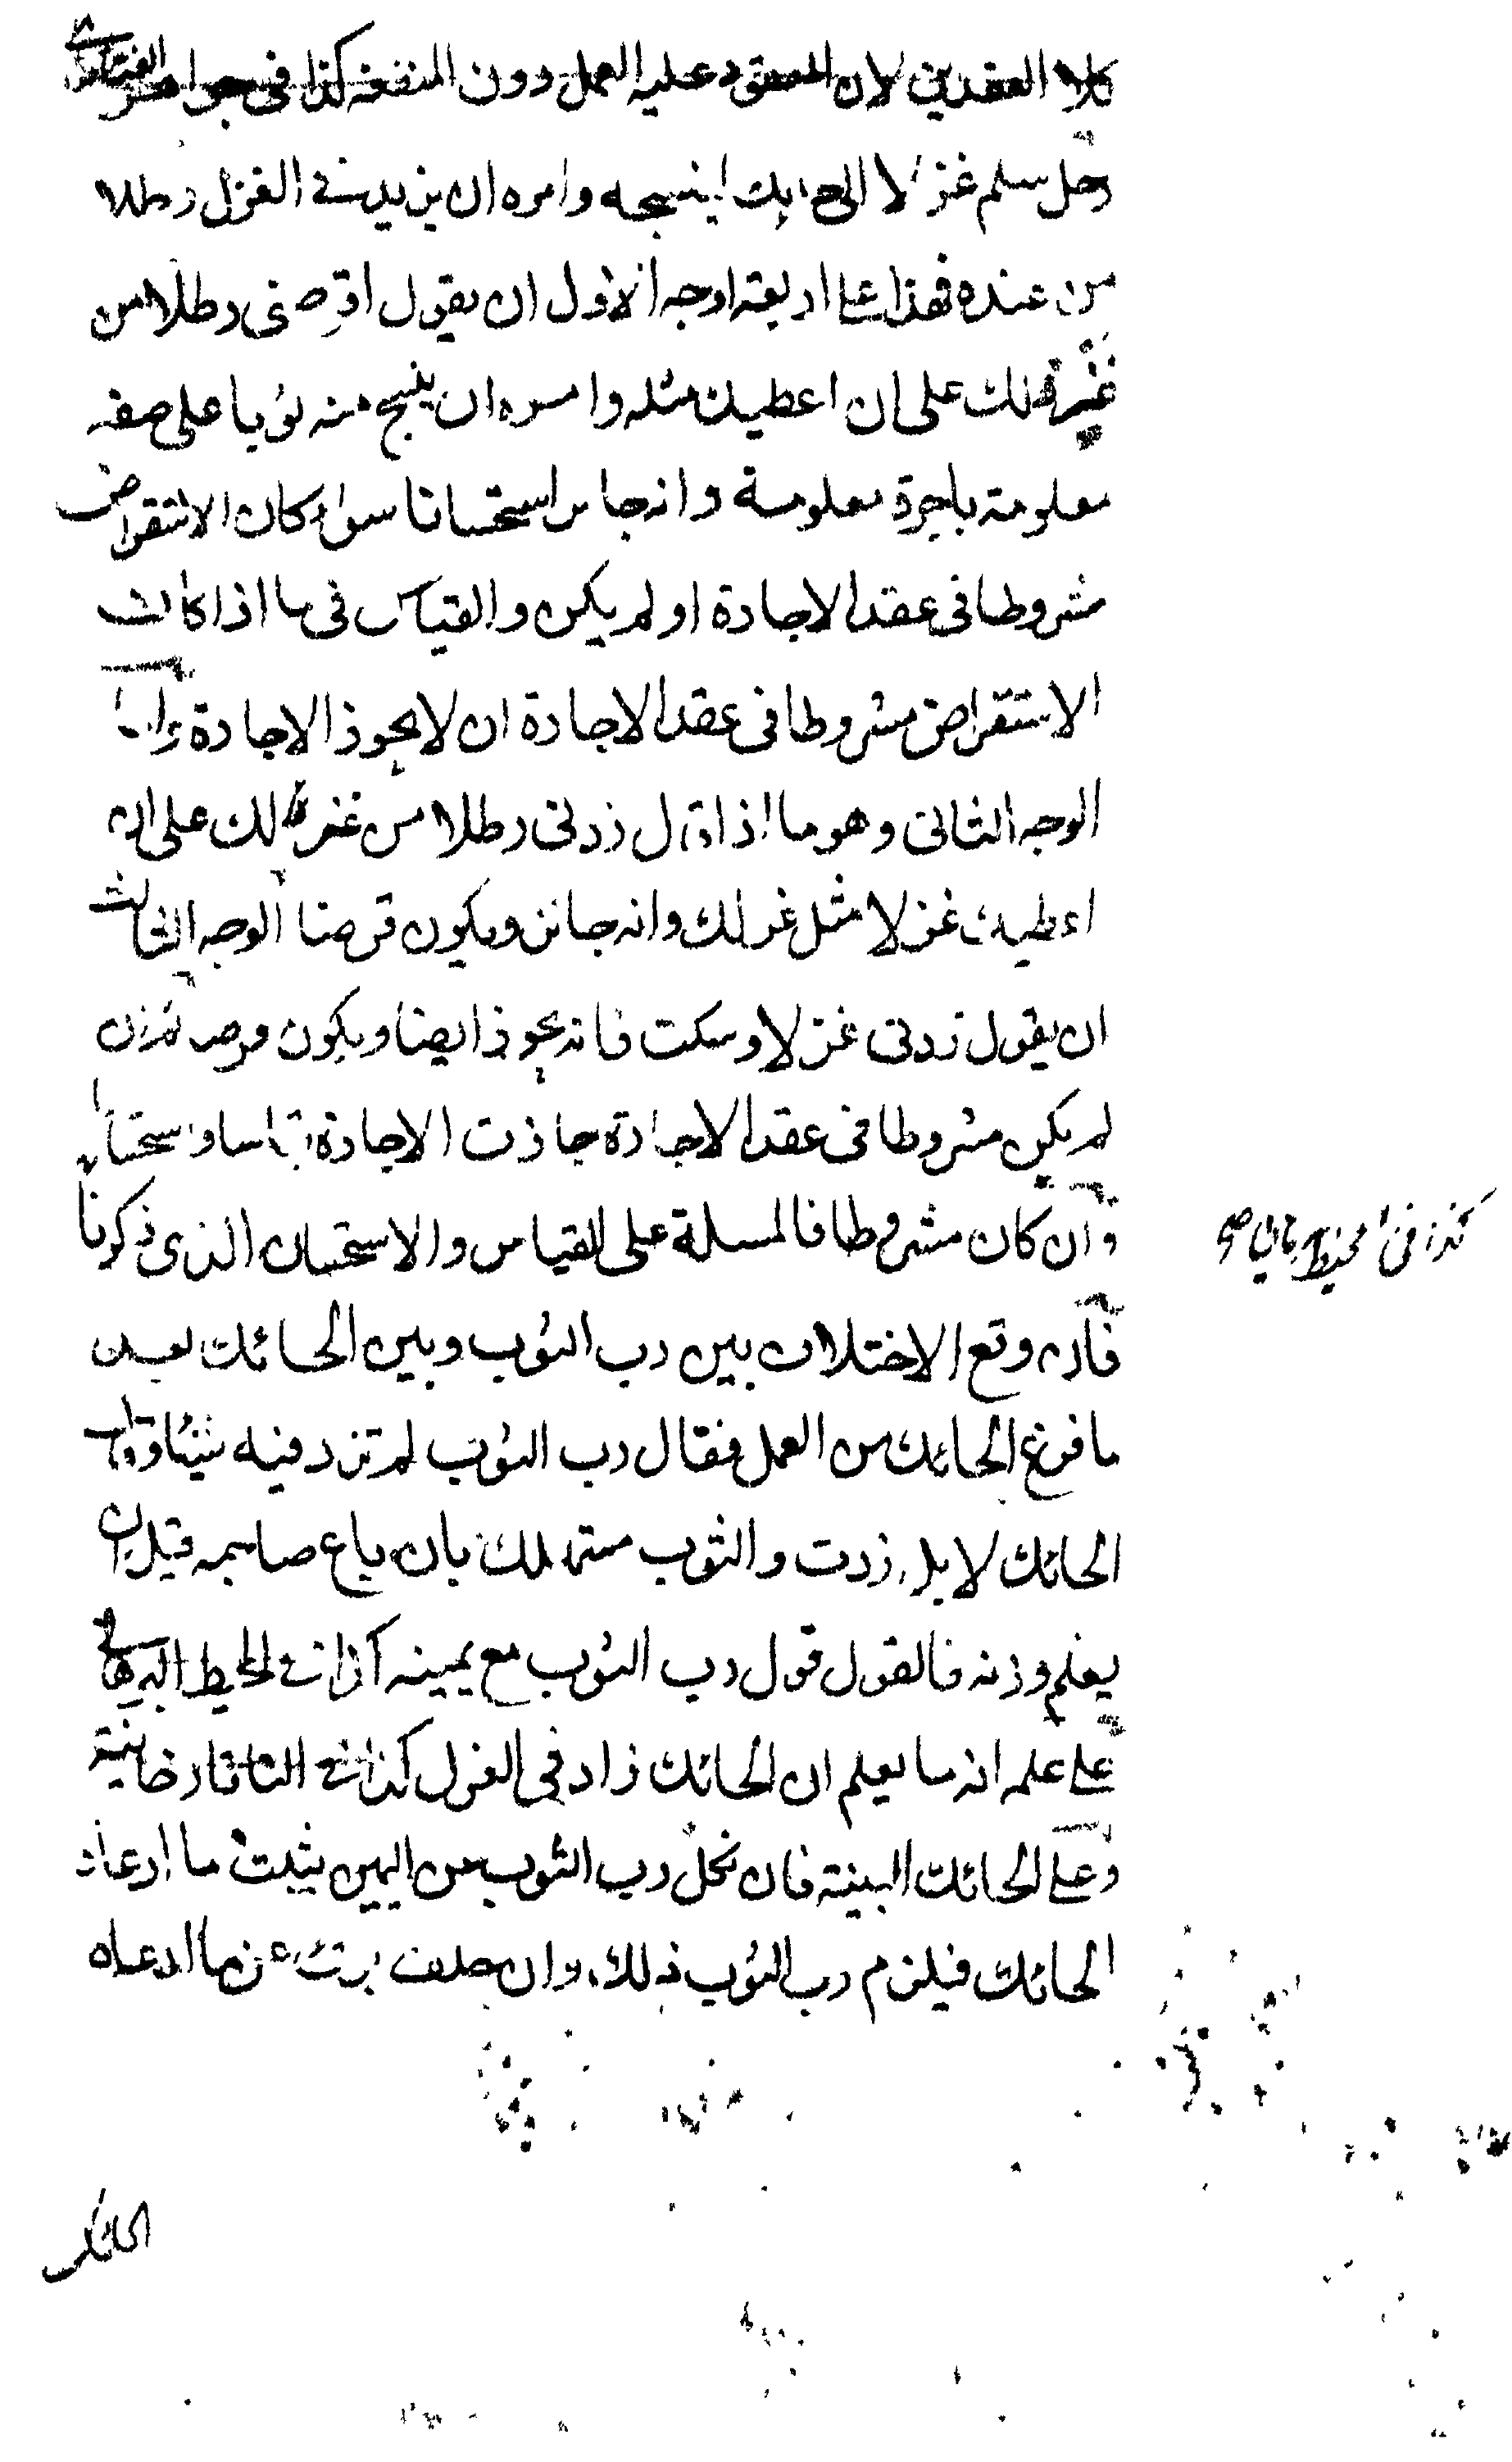 كلا العقدين لان المعقود عليه العمل دون المنفعة كذا فى جواهر الفتاوى
رجل سلم غزلا الى حايك لينسجه وامره ان يزيد فى الغزل رطلا
من عنده فهذا على اربعة اوجه الاول ان يقول اقرضنى رطلا من
غزلك على ان اعطيك مثله وامره ان ينسج منه ثوبا على صفة
معلومة باجرة معلومة وانه جايز استحسانا سواء كان الاستقراض
مشروطا فى عقد الاجارة او لم يكن والقياس فى ما اذا كان
الاستقراض مشروطا فى عقد الاجارة ان لا يجوز الاجارة واما
الوجه الثانى وهو ما اذا قال زدنى رطلا من غزلك على ان
اعطيك غزلا مثل غزلك وانه جائز ويكون قرضا الوجه الثالث
ان يقول زدنى غزلا وسكت فانه يجوز ايضا ويكون قرضا فان
لم يكن مشروطا فى عقد الاجارة جازت الاجارة قياسا واستحسانا
وان كان مشروطا فالمسلة على القياس والاستحسان الذى ذكرنا
كذا فى المحيط
فان وقع الاختلاف بين رب الثوب وبين الحائك بعد
ما فرغ الحائك من العمل فقال رب الثوب لم تزد فيه شيئا وقال
الحائك لا بل زدت والثوب مستهلك بان باع صاحبه قبل ان
يعلم وزنه فالقول قول رب الثوب مع يمينه كذا فى المحيط البرهانى
على علمه انه ما يعلم ان الحائك زاد فى الغزل كذا فى التاتارخانية
وعلى الحائك البينة فان نكل رب الثوب عن اليمين يثبت ما ادعاه
الحائك فيلزم رب الثوب ذلك وان حلف برئ عن ما ادعاه
الحائك